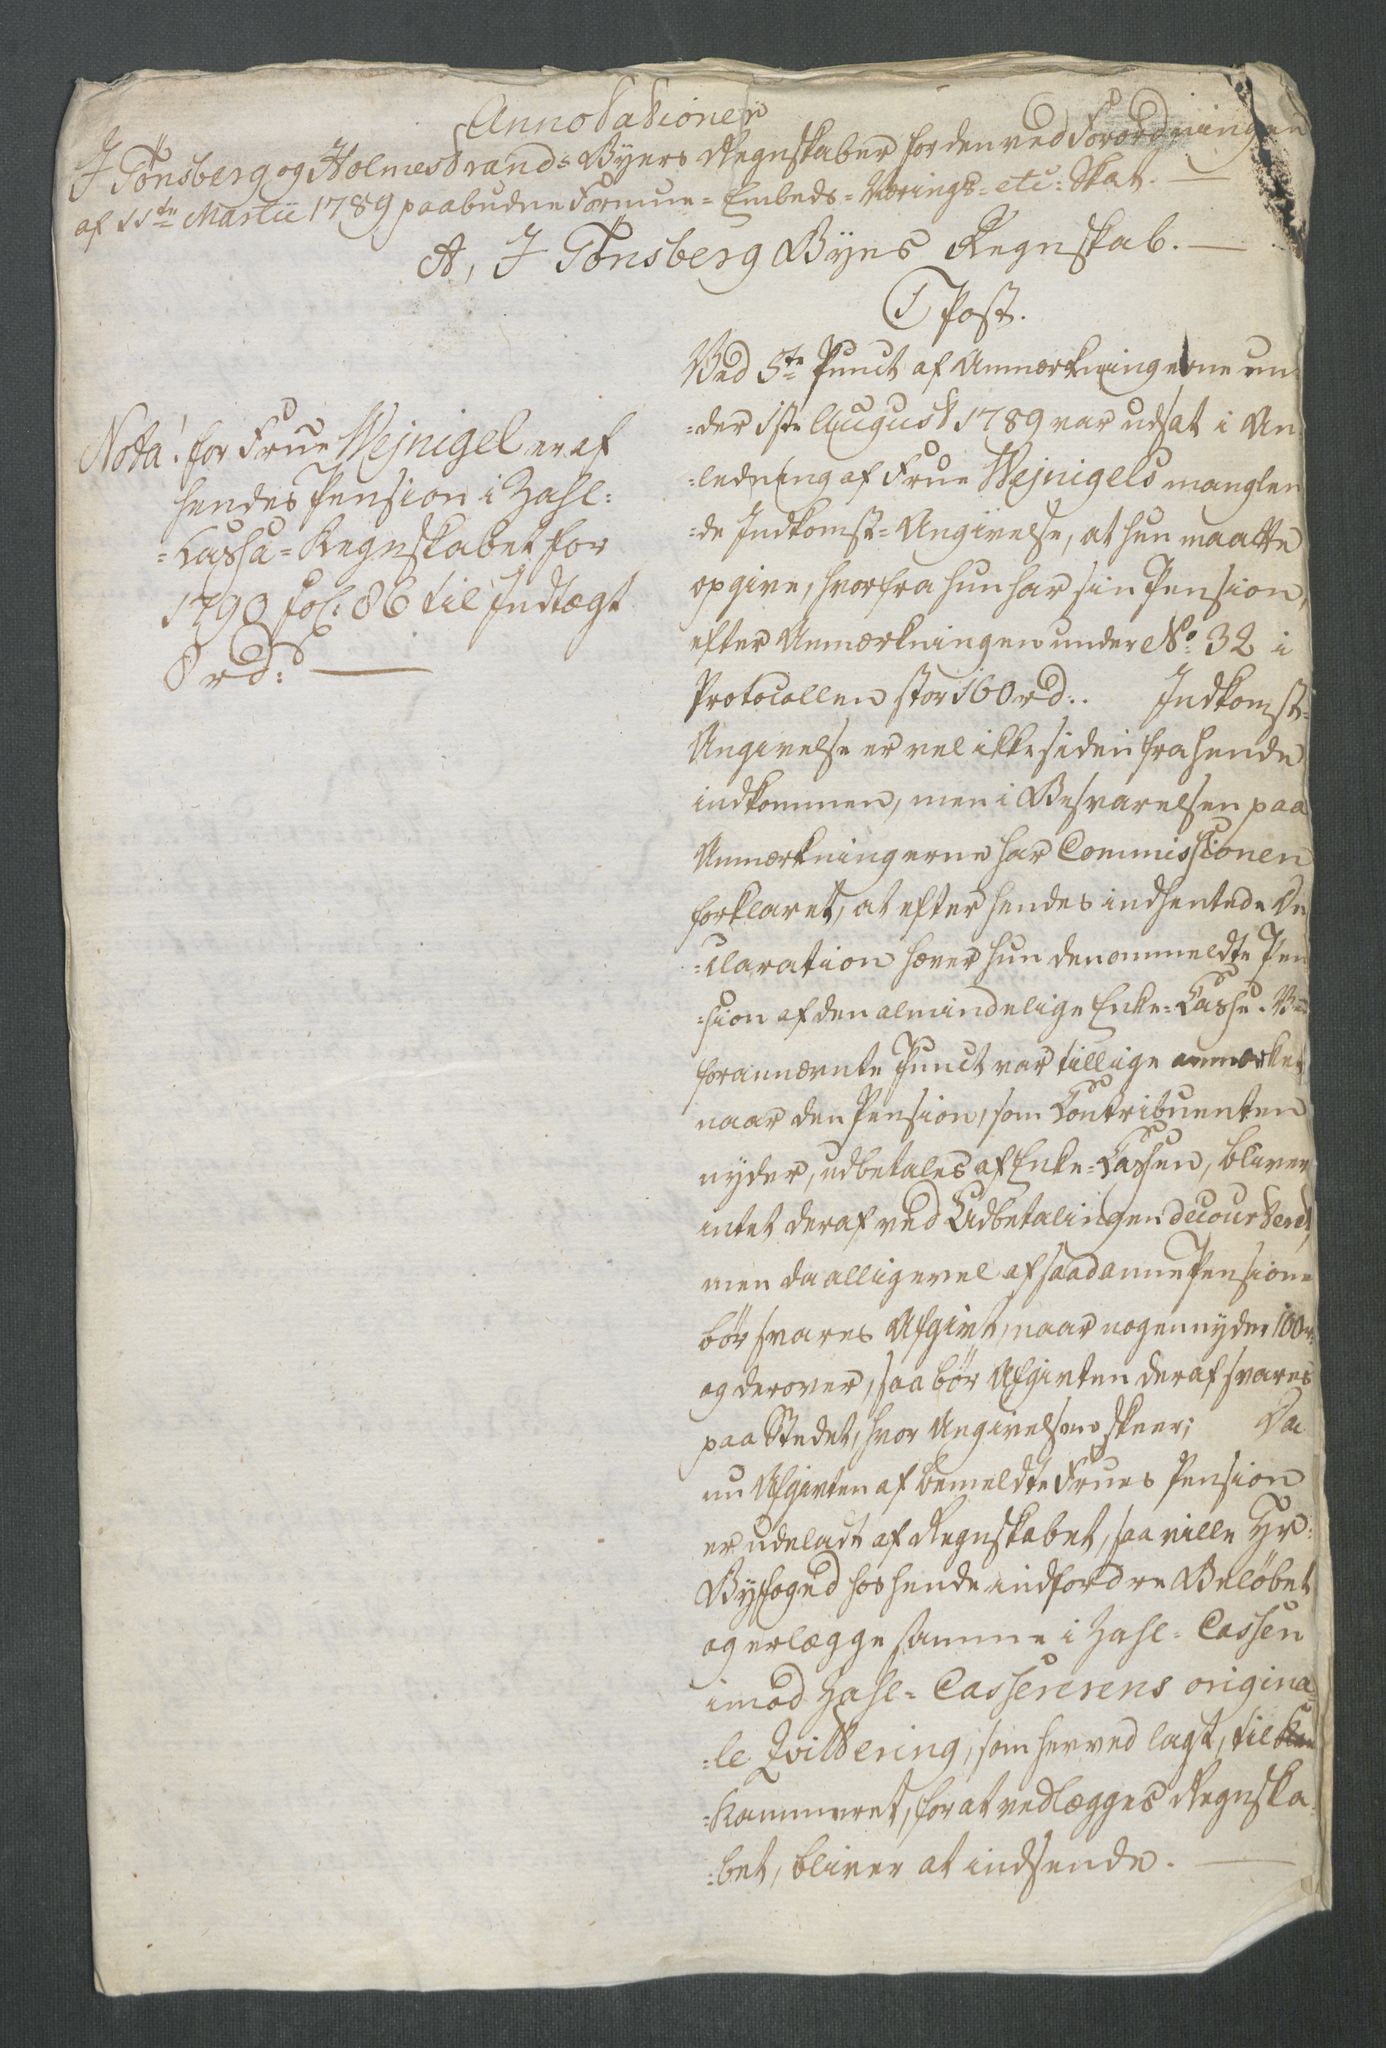 Annotationer
I Tönsberg og Holmestrands Byers Regnskaber for den ved Forordningen
af 11te Martii 1789 paabudne Formue- Embeds- Nærings- etc: Skat. —
A, I Tönsberg Byes Regnskab. —
1 Post.
Ved 5te Punct af Anmærkningerne un-
-der 1ste August 1789 var udsat i An-
-ledning af Frue Wejnigels manglen-
-de Indkomst-Angivelse, at hun maatte
opgive, hvorfra hun har sin Pension,
efter Anmærkningen under No. 32 i
Protocollen stor 160 rd.. Indkomst-
Angivelse er vel ikke siden fra hende
indkommen, men i Besvarelsen paa
Anmærkningerne har Commissionen
forklaret, at efter hendes indhentede De
-claration hæver hun den ommeldte Pen
-sion af den almindelige Enke-Casse. Ved
forannævnte Punct var tillige anmærket
naar den Pension, som Contribuenten
nyder, udbetales af Enke-Cassen, bliver
intet deraf ved Udbetalingen decourteret,
men da alligevel af saadanne Pensione
bör svares Afgivt, naar nogen nyder 100 r:
og derover, saa bör Afgivten deraf svares
paa Stedet, hvor Angivelsen skeer; Da
nu Afgivten af bemeldte Frues Pension
er udeladt af Regnskabet, saa ville Hr:
Byfoged hos hende indfordre Belöbet
og erlægge samme i Zahl-Cassen
imod Zahl-Cassererens origina-
-le Qvittering, som herved lagt, til
-Kammeret, for at vedlægges Regnska-
-bet, bliver at indsende. —
Nota! for Frue Wejnigel er af
hendes Pension i Zahl-
-Cassa-Regnskabet for
1790 fol: 86 til Indtægt
8 rd: —